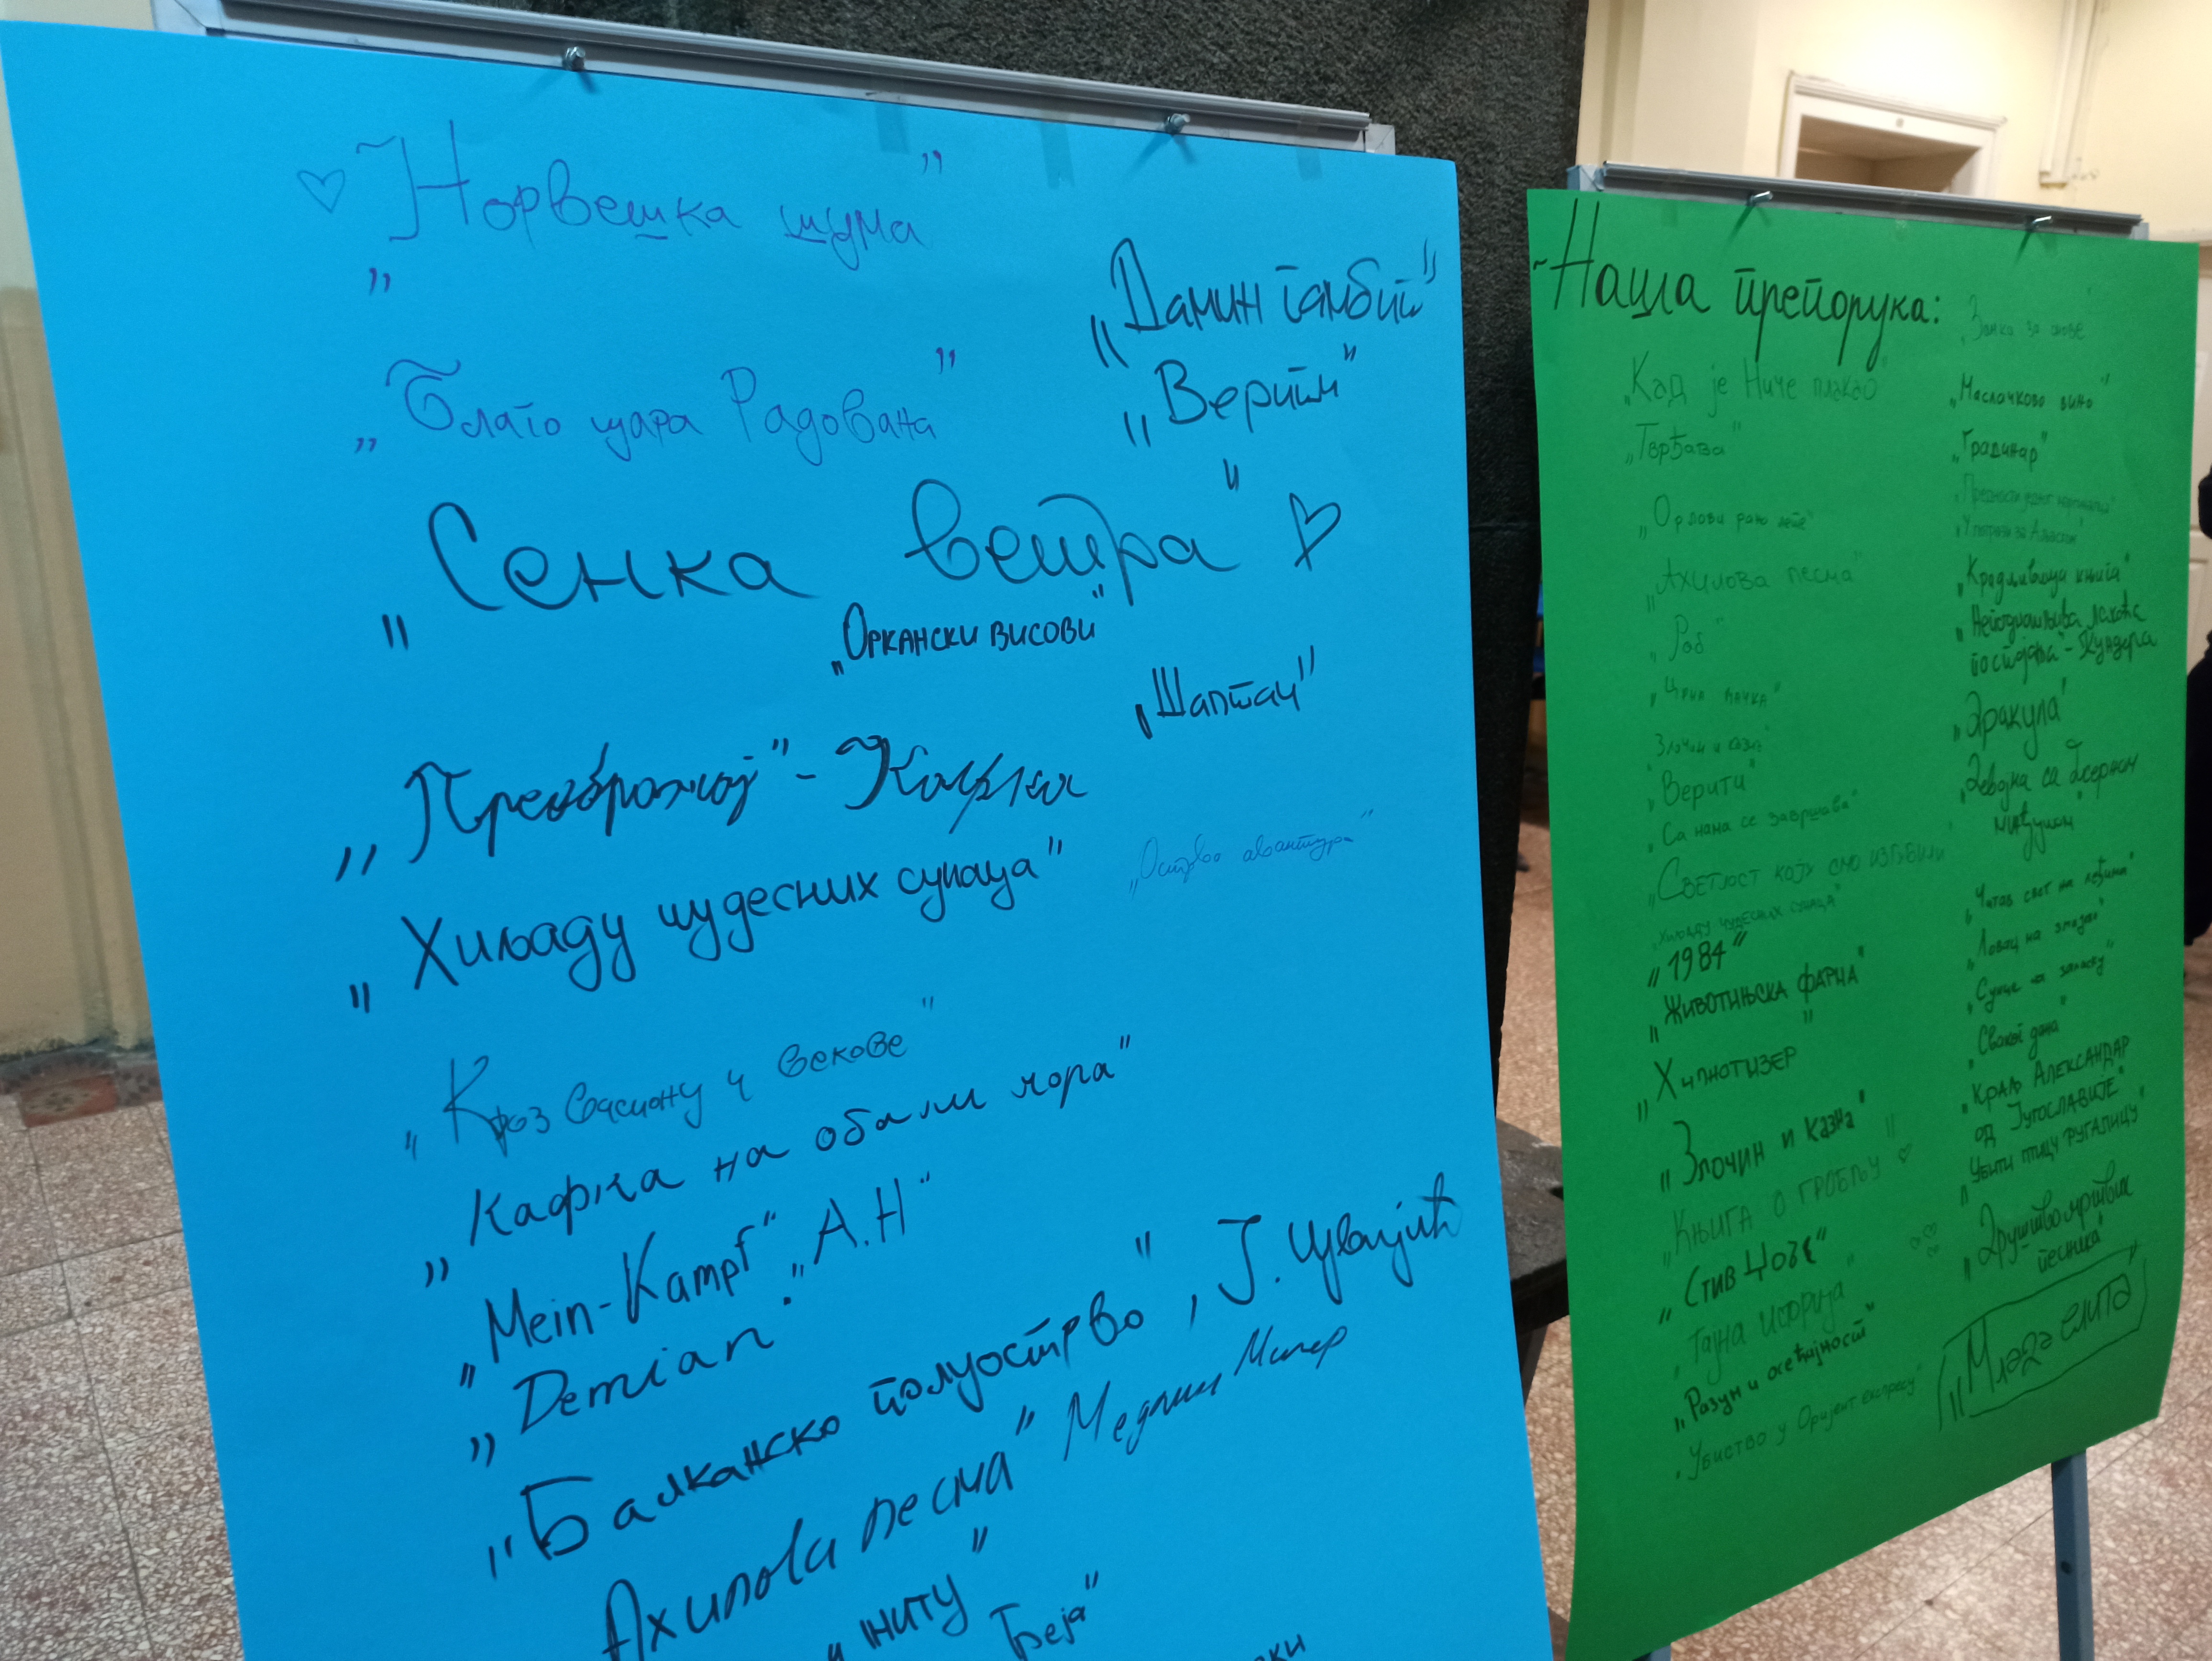 „Норвешка шума”
„Благо цара Радована”
„Дамин гамбит”
„Верити”
„Сенка ветра”
„Оркански висови”
„Шаптач”
„Преображај” - Кафка
„Хиљаду чудесних сунаца”
„Острво авантура”
„Кроз васиону и векове”
„Кафка на обали мора”
„Mein-Kampf” „А.Н”
„Demian”
„Балканско полуострво”, Ј. Цвијић
Ахилова песма” Медлин Милер
Греја”
Наша препорука:
„Кад је Ниче плакао”
„Тврђава”
„Орлови рано лете”
„Ахилова песма”
„Роб”
„Црна мачка”
„Злочин и казна”
„Верити”
„Са нама се завршава”
„Светлост коју смо изгубили
„Хиљаду чудесних сунаца”
„1984”
„Животињска фарма”
„Хипнотизер”
„Злочин и казна”
„Књига о гробљу”
„Стив Џобс”
„Тајна историја”
„Разум и осећајност”
„Убиство у Оријент експресу”
„Маслачково вино”
„Градинар”
„Крадљивица књига”
„Неподношљива лакоћа
постојања” - Кундера
„Дракула”
„Девојка са бисерном
минђушом”
„Читав свет на леђима”
„Ловац на змајеве”
„Сунце на заласку”
„Сваког дана”
„Краљ Александар
од Југославије”
„Убити птицу ругалицу”
„Друштво мртвих
песника”
„Млада елита”